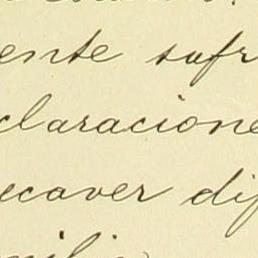 ente sufr
claracione
ecaver dif